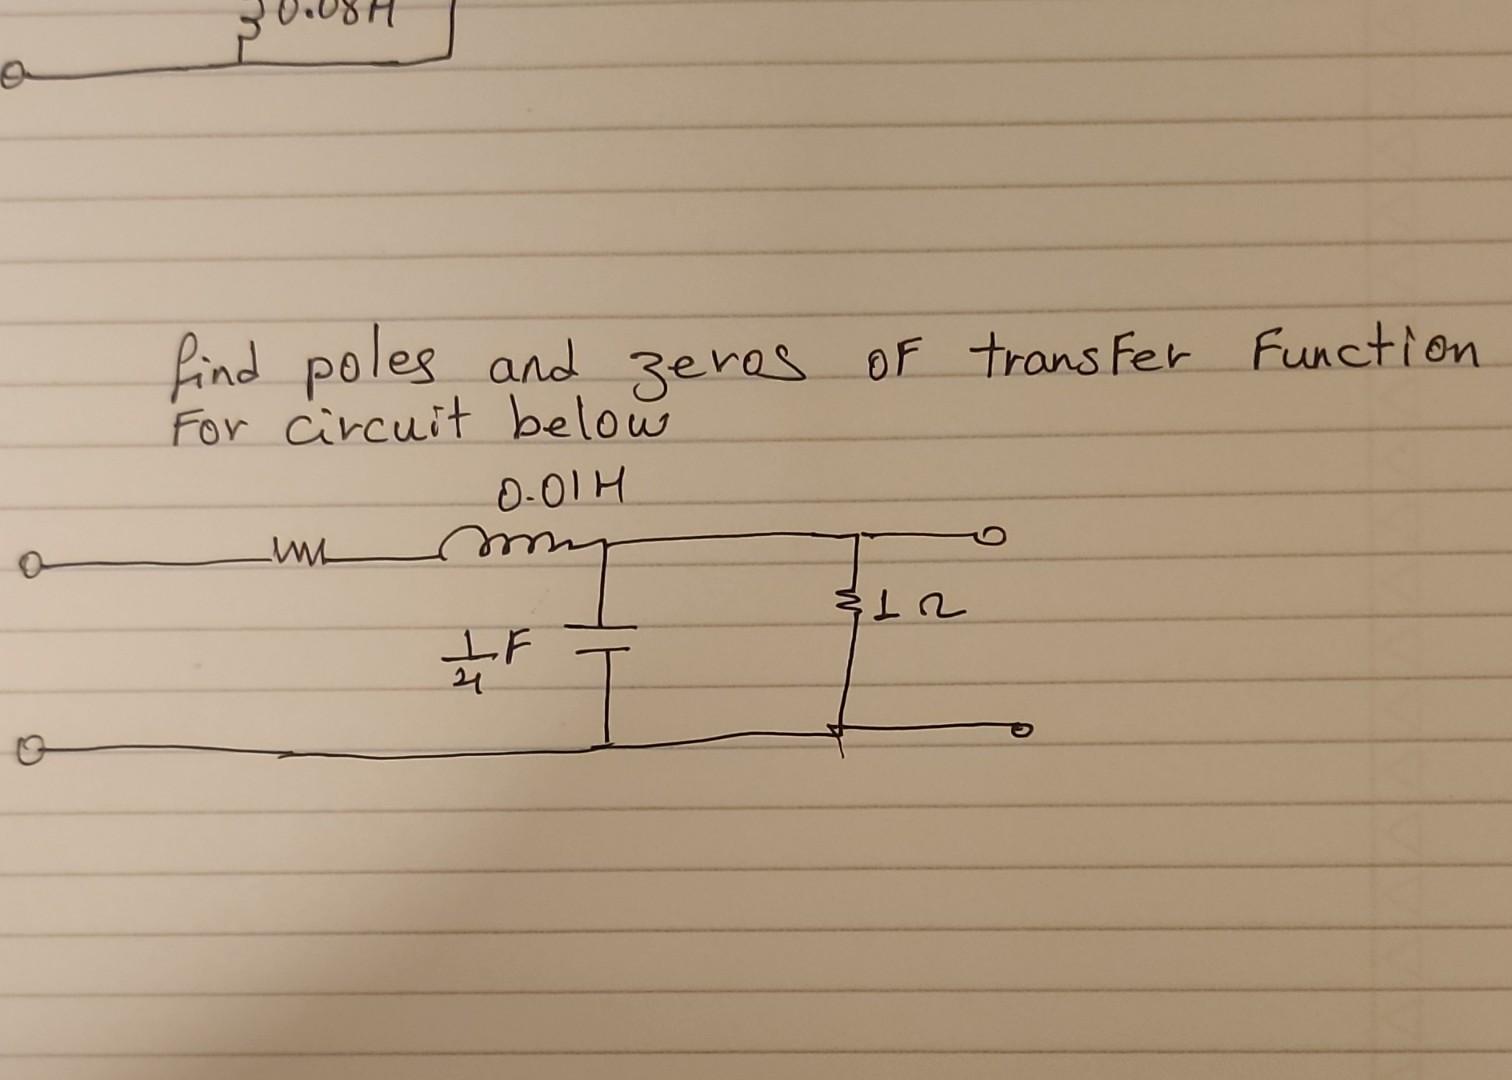 0.08H
find poles and zeros of transfer function
For circuit below
0.01H
1/4 F
1 Ω